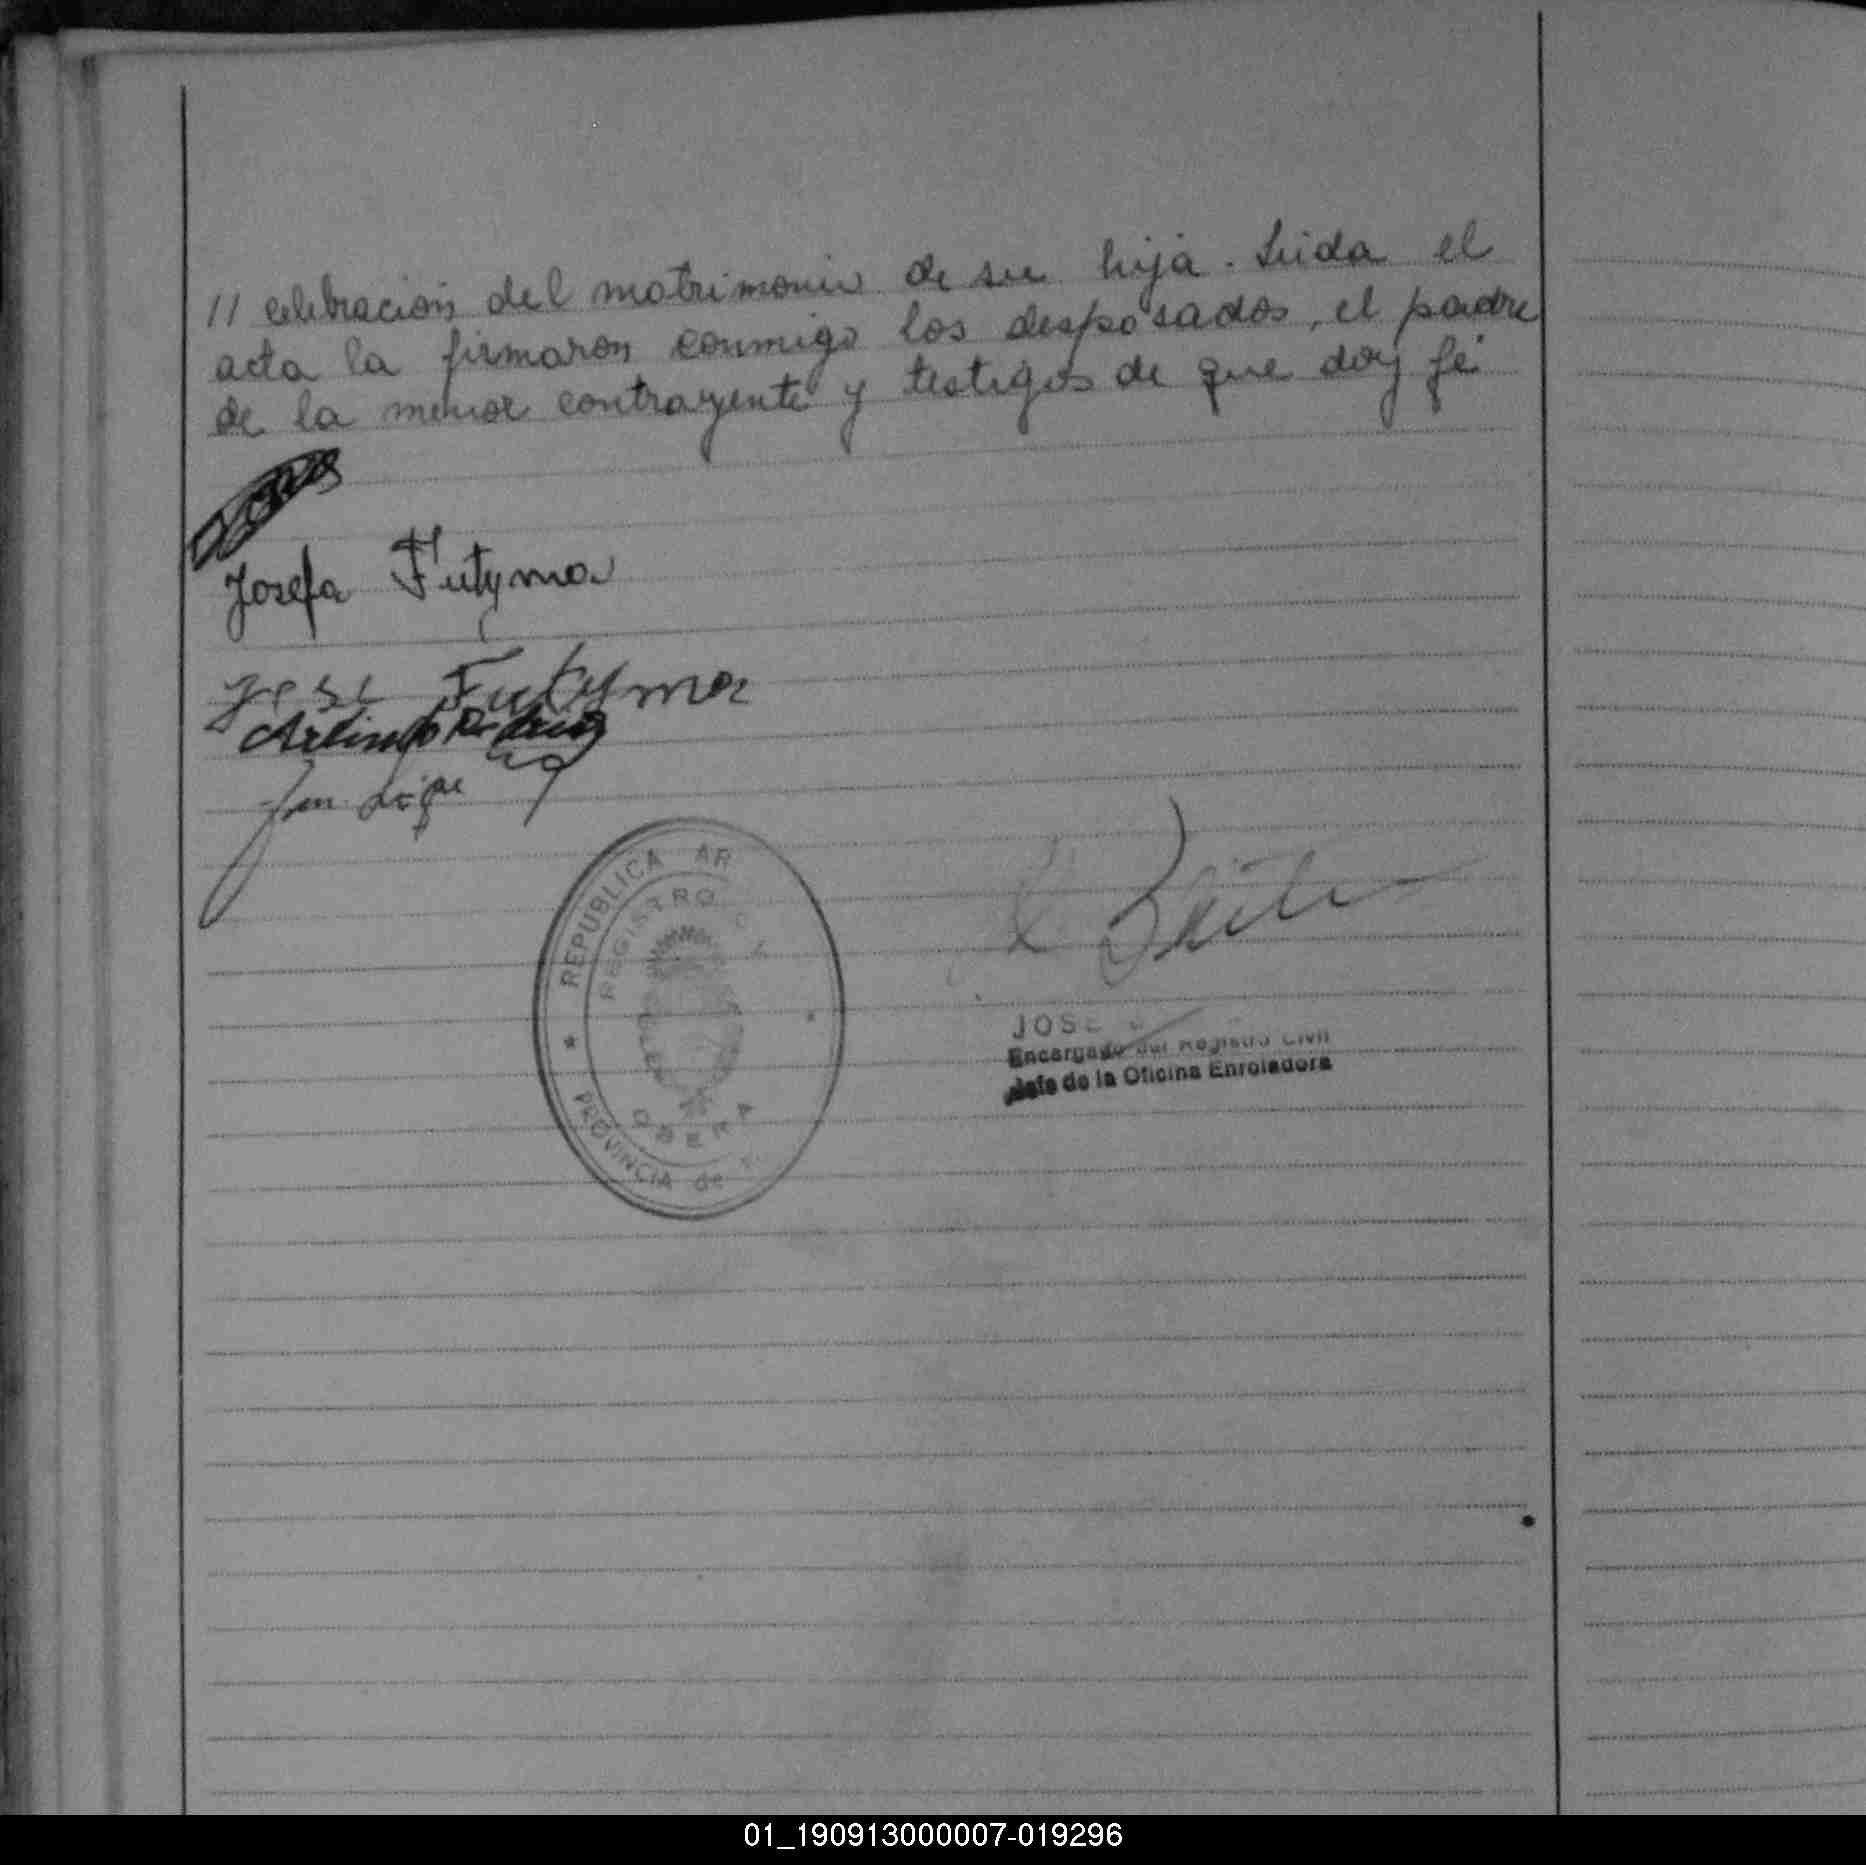 // celebración del matrimonio de su hija. Leida el
acta la firmaron conmigo los desposados, el padre
de la menor contrayente y testigos de que doy fé
Josefa Futyma
José Futyma
Arlindo
REPUBLICA AR
REGISTRO
OBERA
PROVINCIA de
JOSE
Encargado del Registro Civil
Jefe de la Oficina Enroladora
01_190913000007-019296